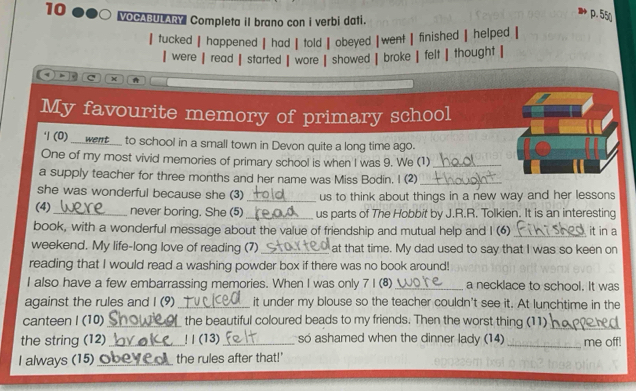 10 VOCABULARY Completa il brano con i verbi dati. p. 550
| tucked | happened | had | told | obeyed | went | finished | helped |
| were | read | started | wore | showed | broke | felt | thought |
My favourite memory of primary school
'I (0) went to school in a small town in Devon quite a long time ago.
One of my most vivid memories of primary school is when I was 9. We (1) had
a supply teacher for three months and her name was Miss Bodin. I (2) thought
she was wonderful because she (3) told us to think about things in a new way and her lessons
(4) were never boring. She (5) read us parts of The Hobbit by J.R.R. Tolkien. It is an interesting
book, with a wonderful message about the value of friendship and mutual help and I (6) finished it in a
weekend. My life-long love of reading (7) started at that time. My dad used to say that I was so keen on
reading that I would read a washing powder box if there was no book around!
I also have a few embarrassing memories. When I was only 7 I (8) wore a necklace to school. It was
against the rules and I (9) tucked it under my blouse so the teacher couldn't see it. At lunchtime in the
canteen I (10) Showed the beautiful coloured beads to my friends. Then the worst thing (11) happened
the string (12) broke ! I (13) felt so ashamed when the dinner lady (14) ______ me off!
I always (15) obeyed the rules after that!'